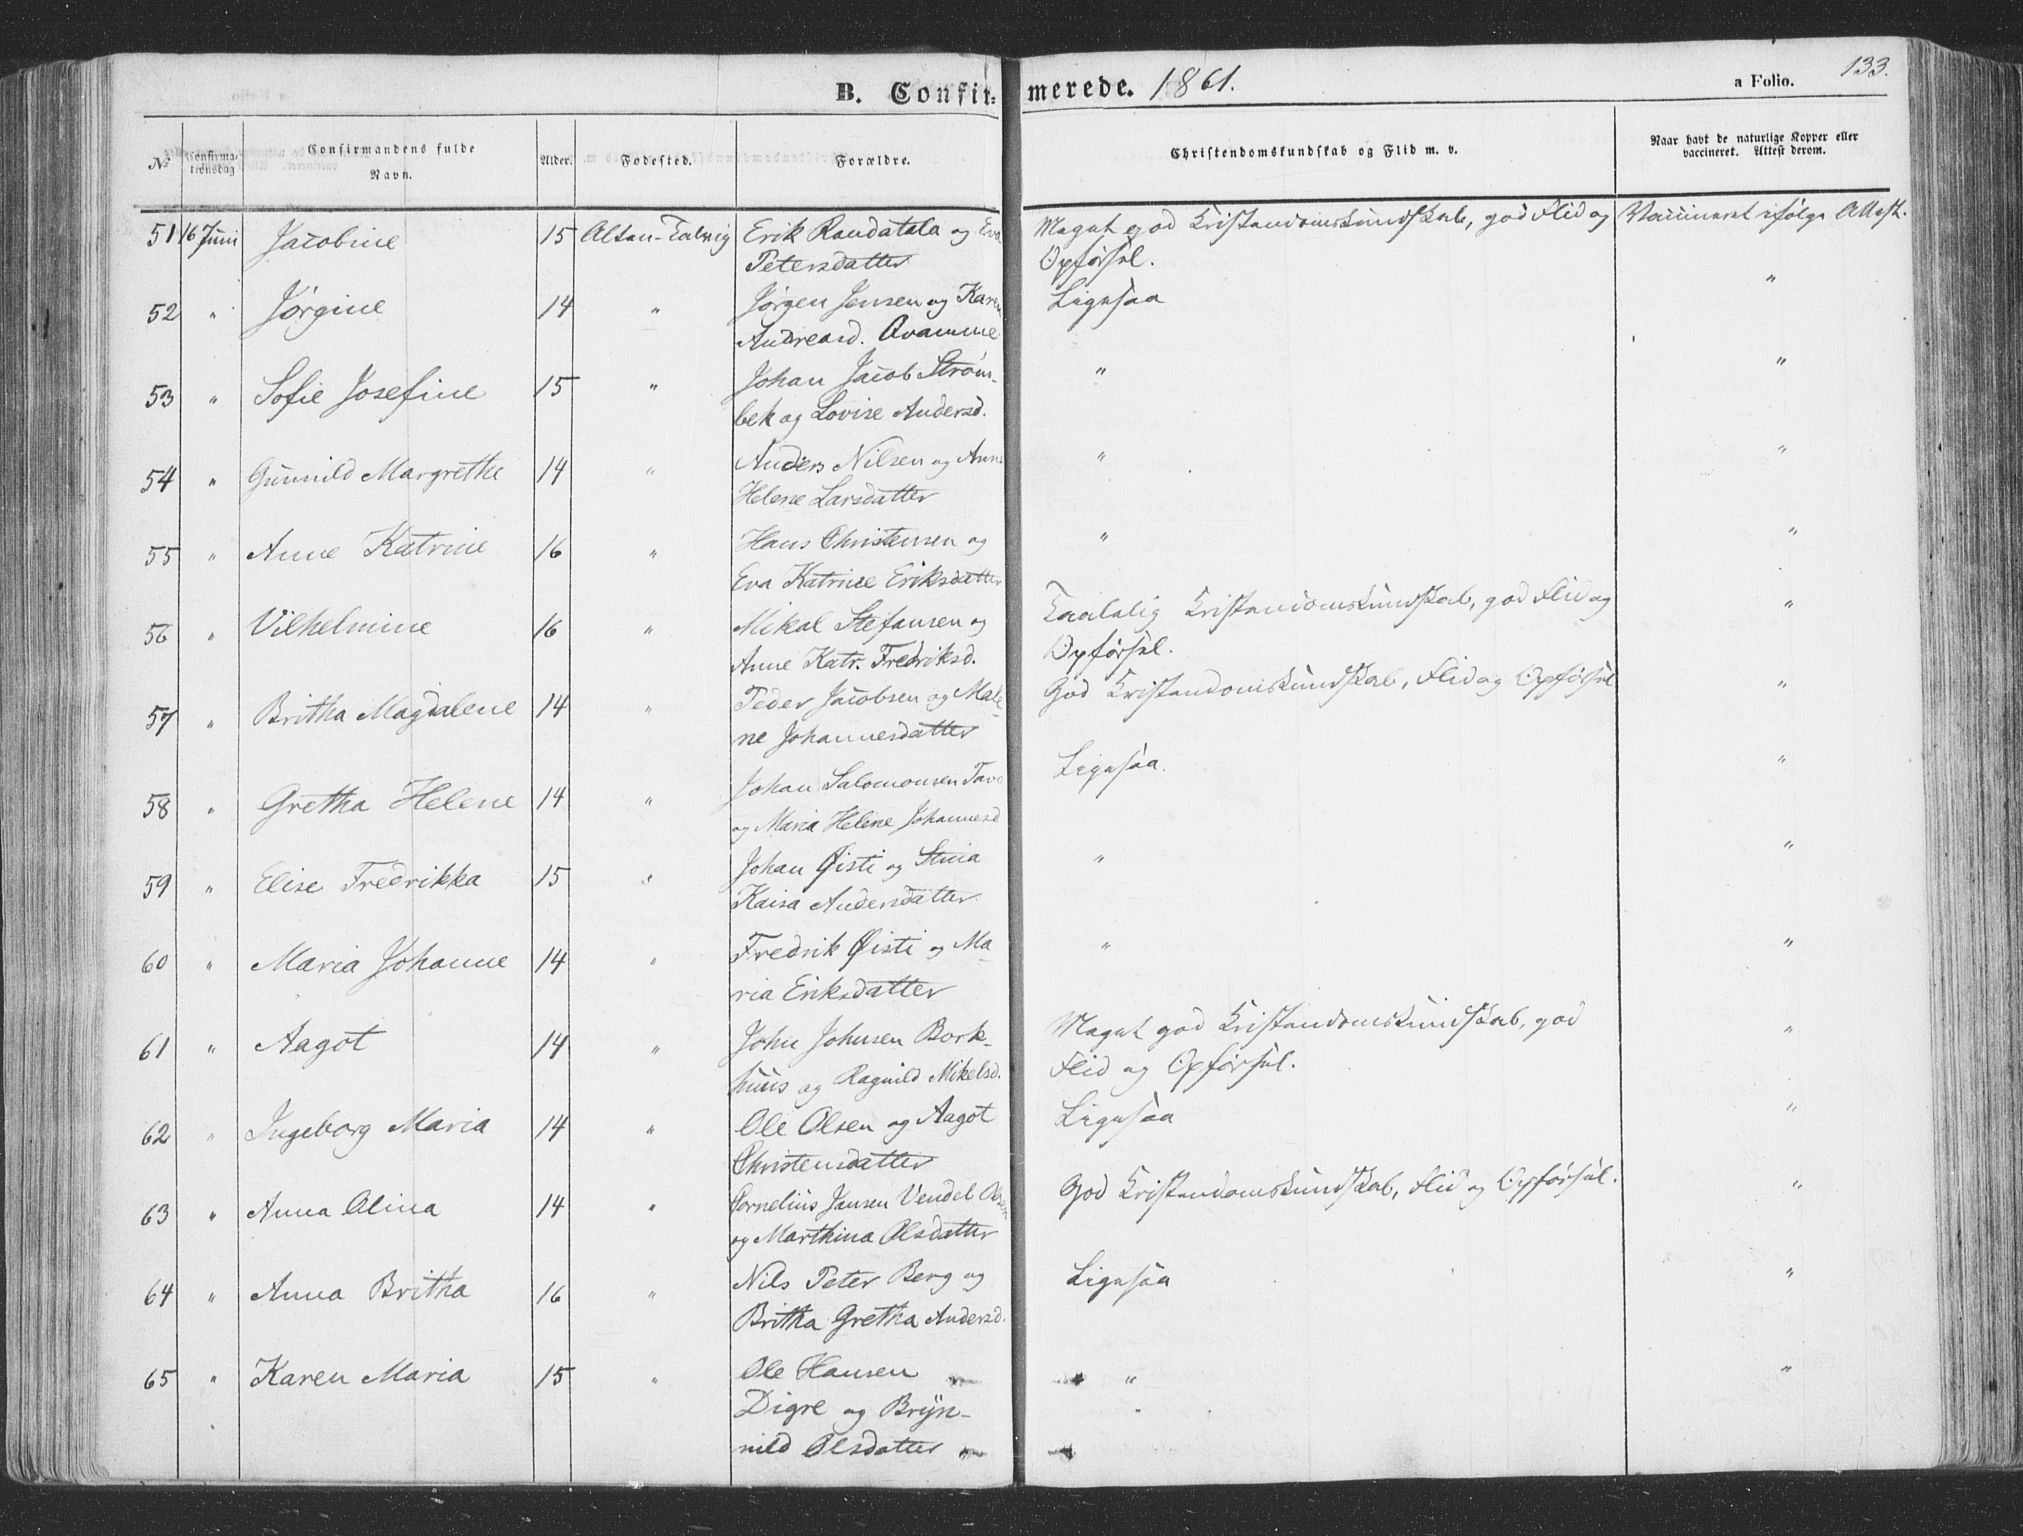 B. Confir- merede. 1861. a Folio. 133.
No Confirma- Confirmandens fulde Alder. Fødested. Forældre. Christendomskundskab og Flid m. v. Naar havt de naturlige Kopper eller
tionsdag Navn. vaccineret. Attest derom.
51 16 Juni Jacobine 15 Alten-Talvig Erik Raudatala og Eva Meget god Kristendomskundskab, god Flid og Vaccineret ifølge Attest.
Petersdatter Opførsel.
52 " Jørgine 14 " Jørgen Jensen og Karen Ligesaa "
Andreasd. Qvamme
53 " Sofie Josefine 15 " Johan Jacob Strøm- " "
bek og Lovise Andersd.
54 " Gunnild Margrethe 14 " Anders Nilsen og Anne " "
Helene Larsdatter
55 " Anne Katrine 16 " Hans Christensen og " "
Eva Katrine Eriksdatter
56 " Vilhelmine 16 " Mikal Stefansen og Taalelig Kristendomskundskab, god Flid og "
Anne Katr. Fredriksd. Opførsel.
57 " Britha Magdalene 14 " Peder Jacobsen og Male- God Kristendomskundskab, Flid og Opførsel "
ne Johannesdatter
58 " Gretha Helene 14 " Johan Salomonsen Tavo Ligesaa. "
og Maria Helene Johannesd
59 " Elise Fredrikka 15 " Johan Øisti og Stina " "
Kaisa Andersdatter
60 " Maria Johanne 14 " Fredrik Øisti og Ma- " "
ria Eriksdatter
61 " Aagot 14 " John Johnsen Bork- Meget god Kristendomskundskab, god "
huus og Ragnild Mikelsd. Flid og Opførsel.
62 " Ingeborg Maria 14 " Ole Olsen og Aagot Ligesaa "
Christensdatter
63 " Anna Olina 14 " Cornelius Jansen Vendel Olsen God Kristendomskundskab, Flid og Opførsel. "
og Marthina Olsdatter
64 " Anna Britha 16 " Nils Peter Berg og Ligesaa "
Britha Gretha Andersd.
65 " Karen Maria 15 " Ole Hansen " "
Digre og Bryn-
nild Olsdatter